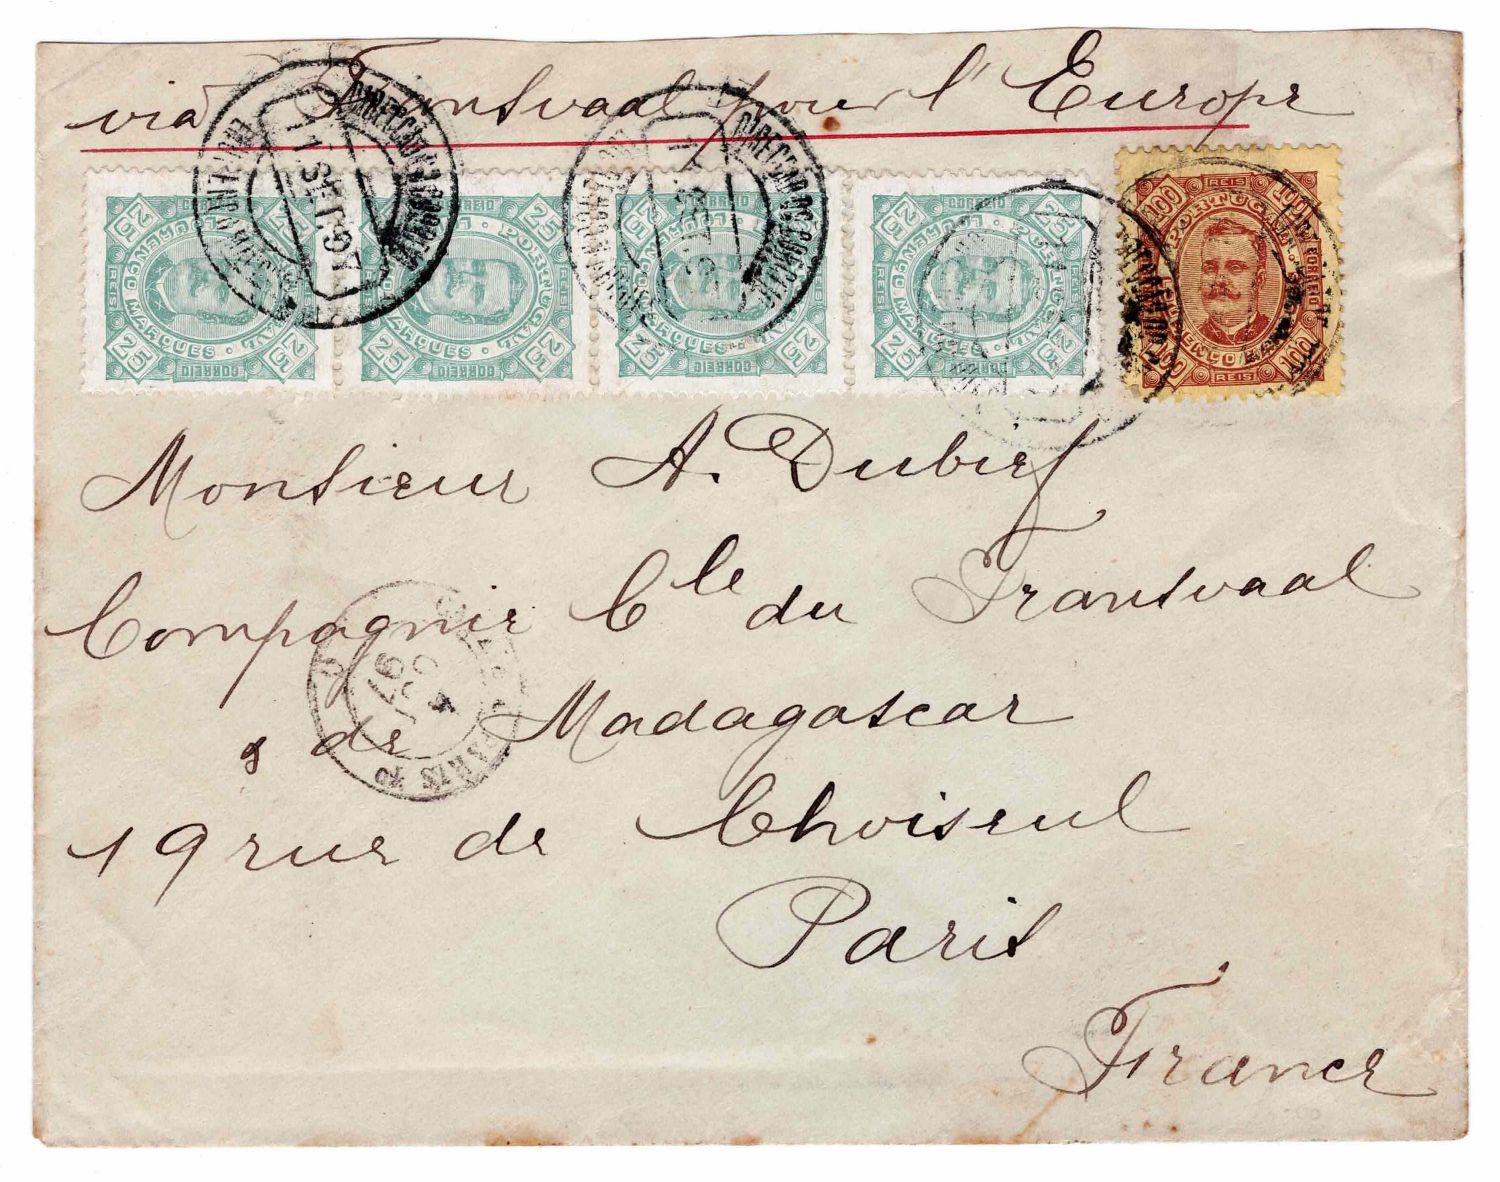 via Transvaal pour l'Europe
25 25 PORTUGAL LOURENÇO MARQUES CORREIO REIS 25 25
25 25 PORTUGAL LOURENÇO MARQUES CORREIO REIS 25 25
25 25 PORTUGAL LOURENÇO MARQUES CORREIO REIS 25 25
25 25 PORTUGAL LOURENÇO MARQUES CORREIO REIS 25 25
100 REIS 100 PORTUGAL LOURENÇO CORREIO 100 REIS 100
DIRECÇÃO DO CORREIO
11 SET 97
Monsieur A. Dubief
Compagnie Cle du Transvaal
& de Madagascar
PARIS
4 97
19 rue de Choiseul
Paris
France